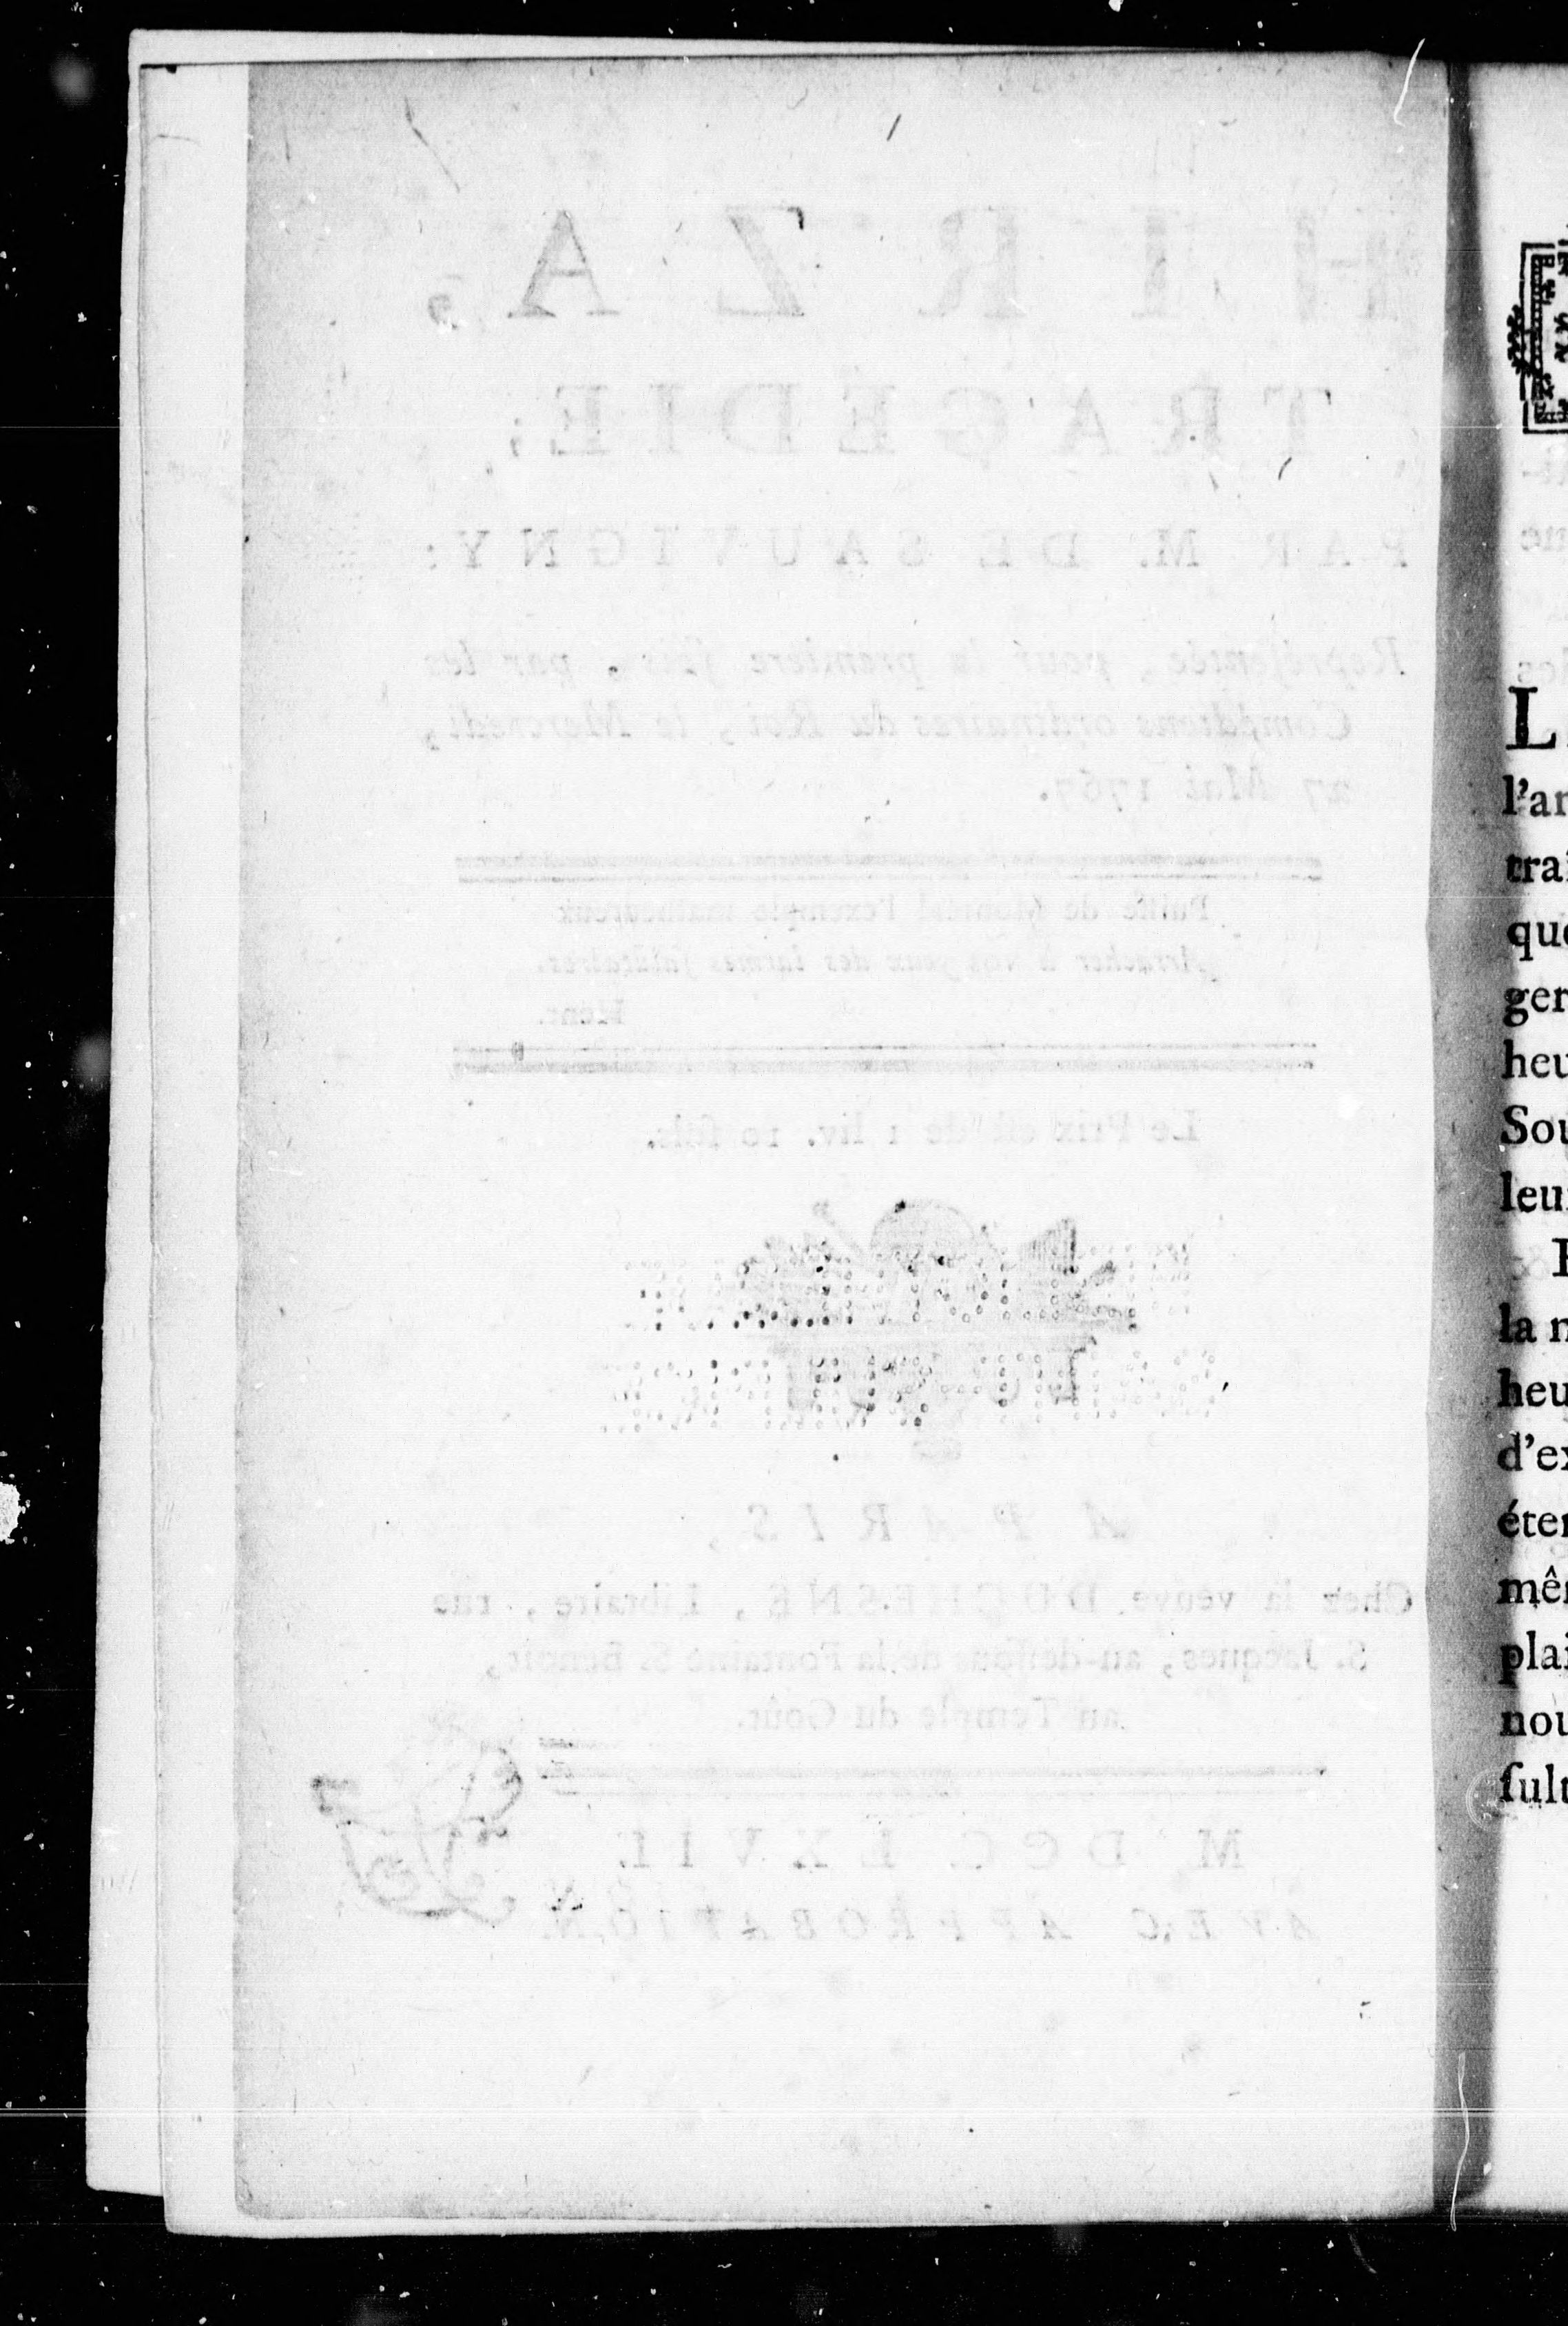 HIRZA,
TRAGÉDIE;
PAR M. DE SAUVIGNY:
Repréſentée, pour la premiere fois, par les
Comédiens ordinaires du Roi, le Mercredi,
27 Mai 1767.
Puiſſe de Monréal l'exemple malheureux
Arracher à vos yeux des larmes ſalutaires.
Le Prix eſt de 1 liv. 10 ſols.
A PARIS,
Chez la veuve DUCHESNE, Libraire, rue
S. Jacques, au-deſſous de la Fontaine S. Benoît,
au Temple du Goût.
M. DCC. LXVII.
AVEC APPROBATION.
L
l'a
tra
que
ger
heu
Sou
leu
la
heu
d'e
éte
mê
plai
nou
ſult